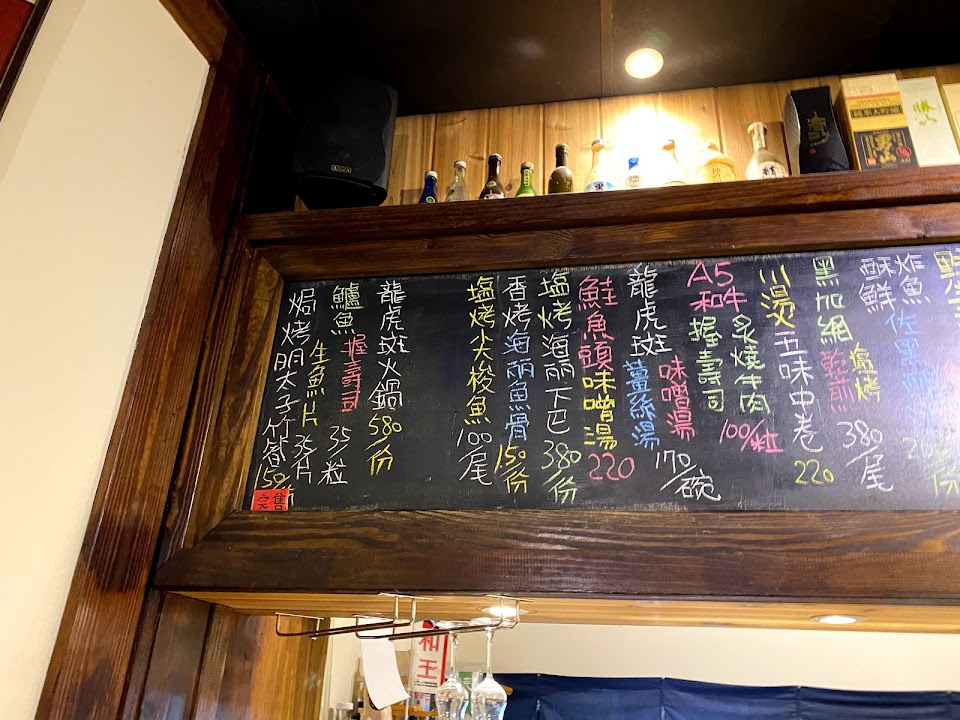 酥炸
鮮魚
黑加網
鹽烤
乾煎
380/尾
川燙五味中卷
220
A5
和牛
握壽司
炙燒牛肉
100/粒
龍虎斑
味噌湯
薑絲湯
170/碗
鮭魚頭味噌湯
220
塩烤海丽下巴
380/份
香烤海丽魚骨
150/份
塩烤尖梭魚
100/尾
龍虎斑火鍋
580/份
鱸魚
握壽司
35/粒
生魚片
35/片
焗烤明太子竹筍
150/
完售
和王